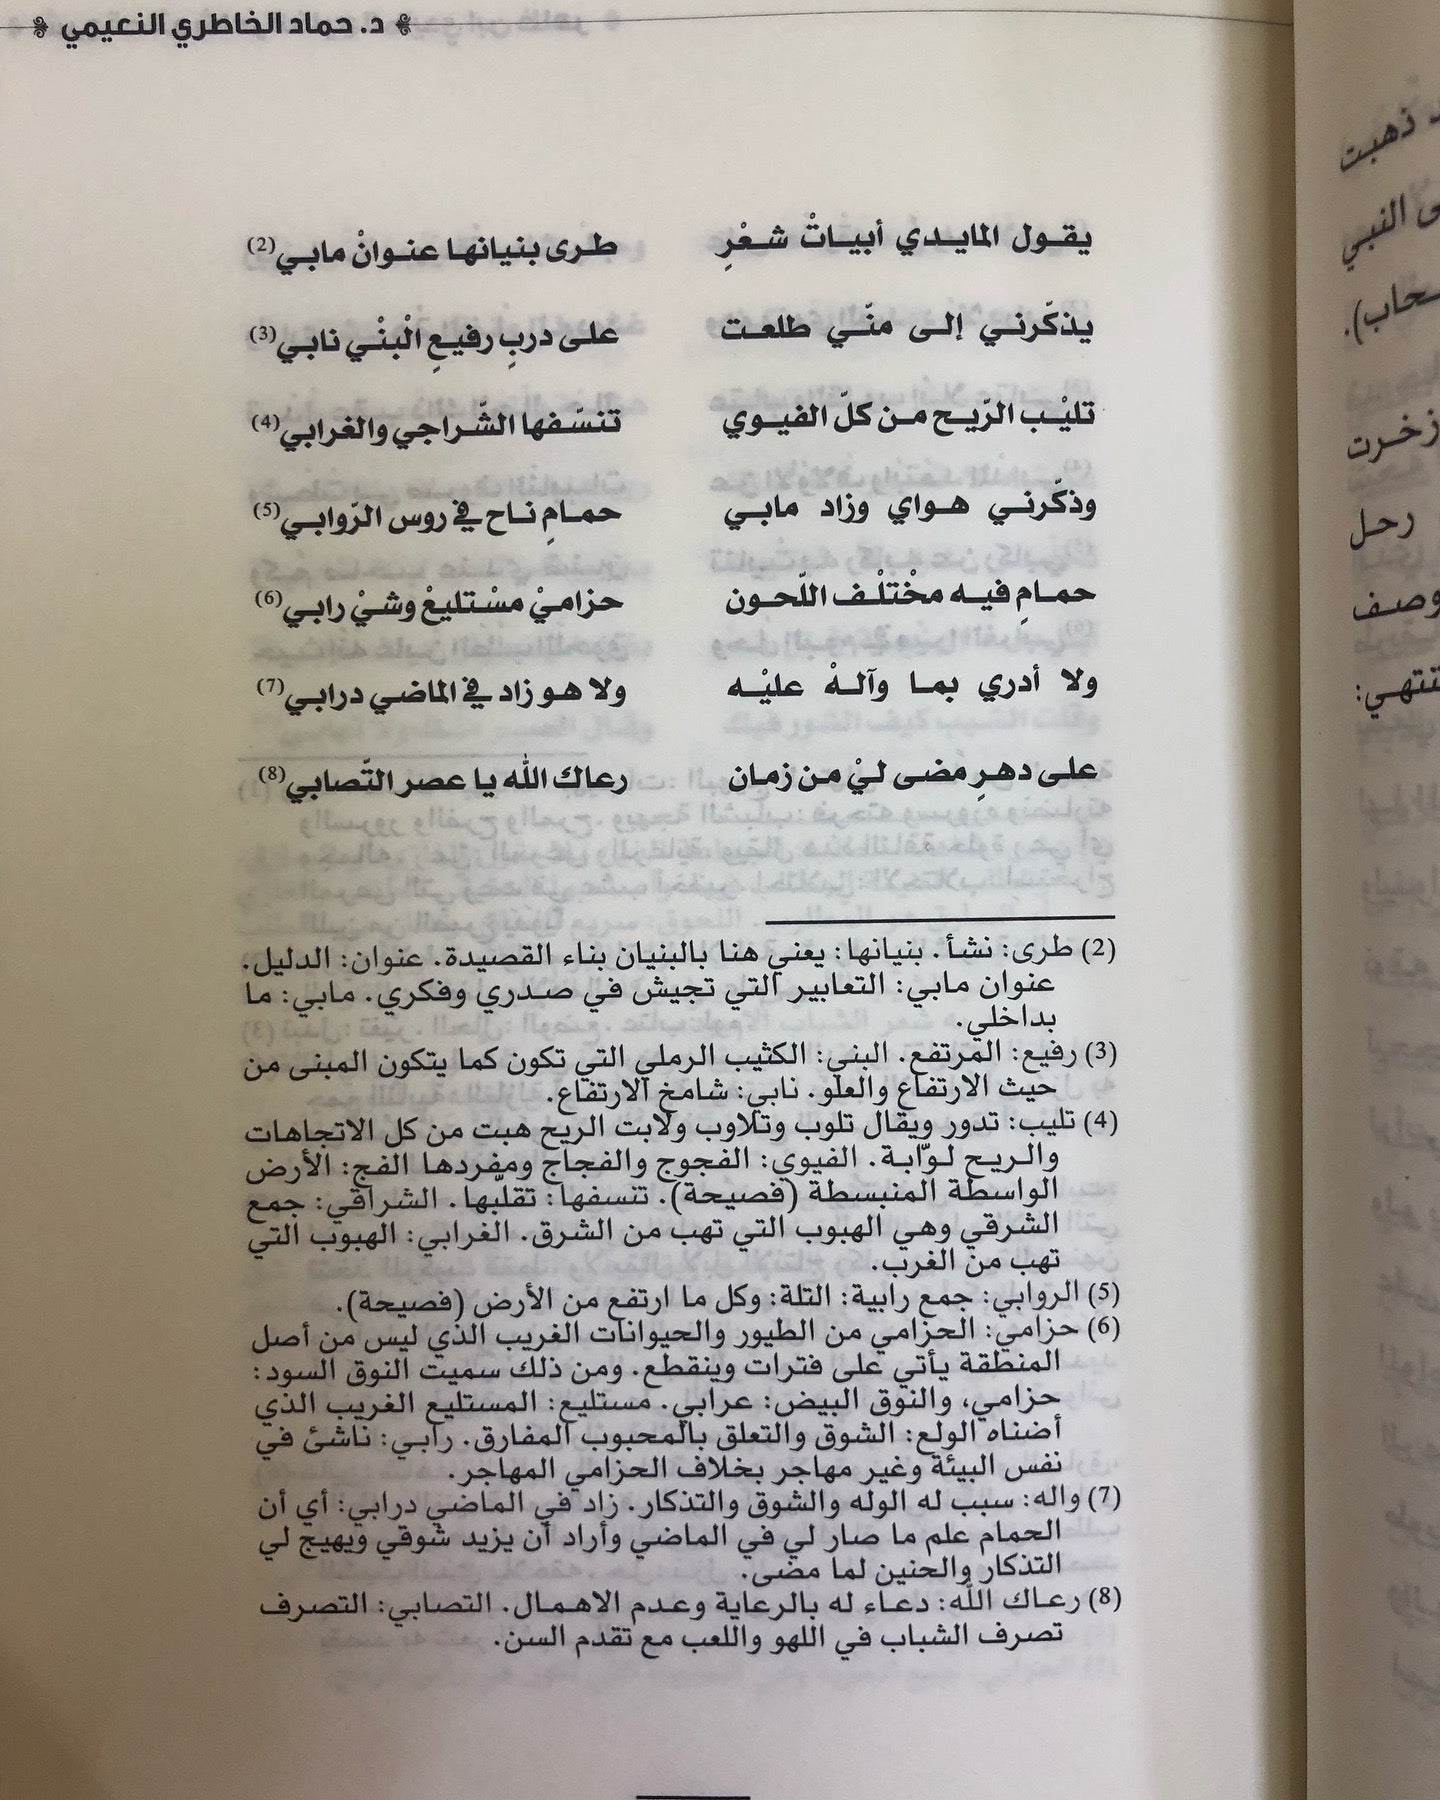 د. حماد الخاطري النعيمي
يقول المايدي أبياتْ شعْرِ طرى بنيانها عنوانْ مابي(2)
يذكّرني إلى منّي طلعت على دربِ رفيعِ الْبنْي نابي(3)
تليْب الرّيح من كلّ الفيوي تنسّفها الشّراجي والغرابي(4)
وذكّرني هواي وزاد مابي حمامِ ناح في روس الرّوابي(5)
حمامِ فيه مخْتلْف اللّحون حزاميْ مسْتليعْ وشيْ رابي(6)
ولا أدري بما وآلهْ عليْه ولا هو زاد في الماضي درابي(7)
على دهرِ مضى ليْ من زمان رعاك الله يا عصر التّصابي(8)
(2) طرى: نشأ. بنيانها: يعني هنا بالبنيان بناء القصيدة. عنوان: الدليل.
عنوان مابي: التعابير التي تجيش في صدري وفكري. مابي: ما
بداخلي.
(3) رفيع: المرتفع. البني: الكثيب الرملي التي تكون كما يتكون المبنى من
حيث الارتفاع والعلو. نابي: شامخ الارتفاع.
(4) تليب: تدور ويقال تلوب وتلاوب ولابت الريح هبت من كل الاتجاهات
والريح لوّابة. الفيوي: الفجوج والفجاج ومفردها الفج: الأرض
الواسطة المنبسطة (فصيحة). تنسفها: تقلّبها. الشراقي: جمع
الشرقي وهي الهبوب التي تهب من الشرق. الغرابي: الهبوب التي
تهب من الغرب.
(5) الروابي: جمع رابية: التلة: وكل ما ارتفع من الأرض (فصيحة).
(6) حزامي: الحزامي من الطيور والحيوانات الغريب الذي ليس من أصل
المنطقة يأتي على فترات وينقطع. ومن ذلك سميت النوق السود:
حزامي، والنوق البيض: عرابي. مستليع: المستليع الغريب الذي
أضناه الولع: الشوق والتعلق بالمحبوب المفارق. رابي: ناشئ في
نفس البيئة وغير مهاجر بخلاف الحزامي المهاجر.
(7) واله: سبب له الوله والشوق والتذكار. زاد في الماضي درابي: أي أن
الحمام علم ما صار لي في الماضي وأراد أن يزيد شوقي ويهيج لي
التذكار والحنين لما مضى.
(8) رعاك الله: دعاء له بالرعاية وعدم الاهمال. التصابي: التصرف
تصرف الشباب في اللهو واللعب مع تقدم السن.
ذهبت
النبي
سحاب).
زخرت
رحل
وصف
تنتهي: